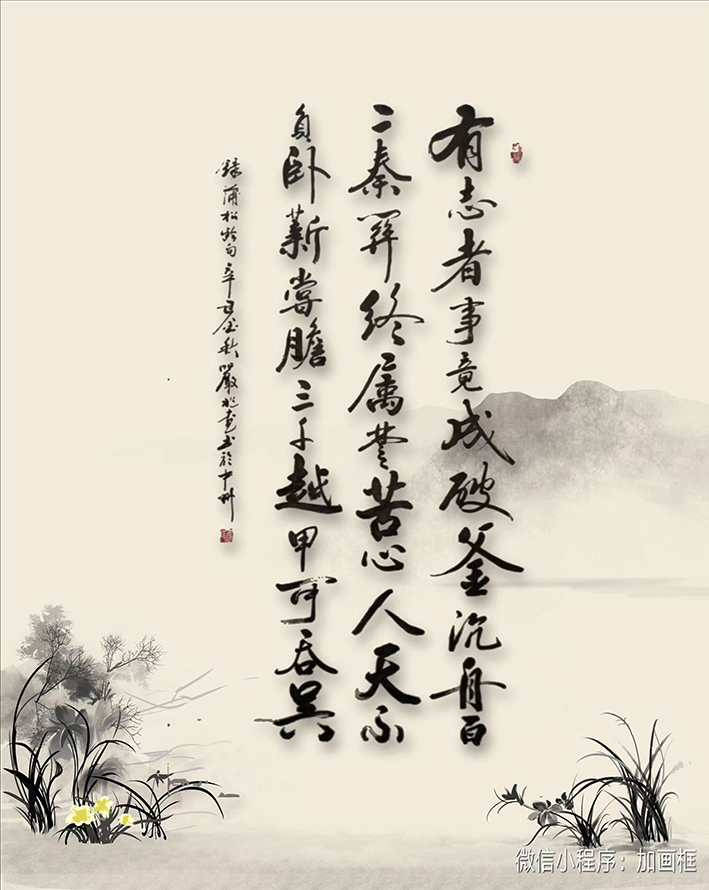 有志者事竟成破釜沉舟百
二秦關終属楚苦心人天不
負卧薪嘗膽三千越甲可吞吳
錄蒲松龄句辛丑金秋嚴書於中州
微信小程序：加画框